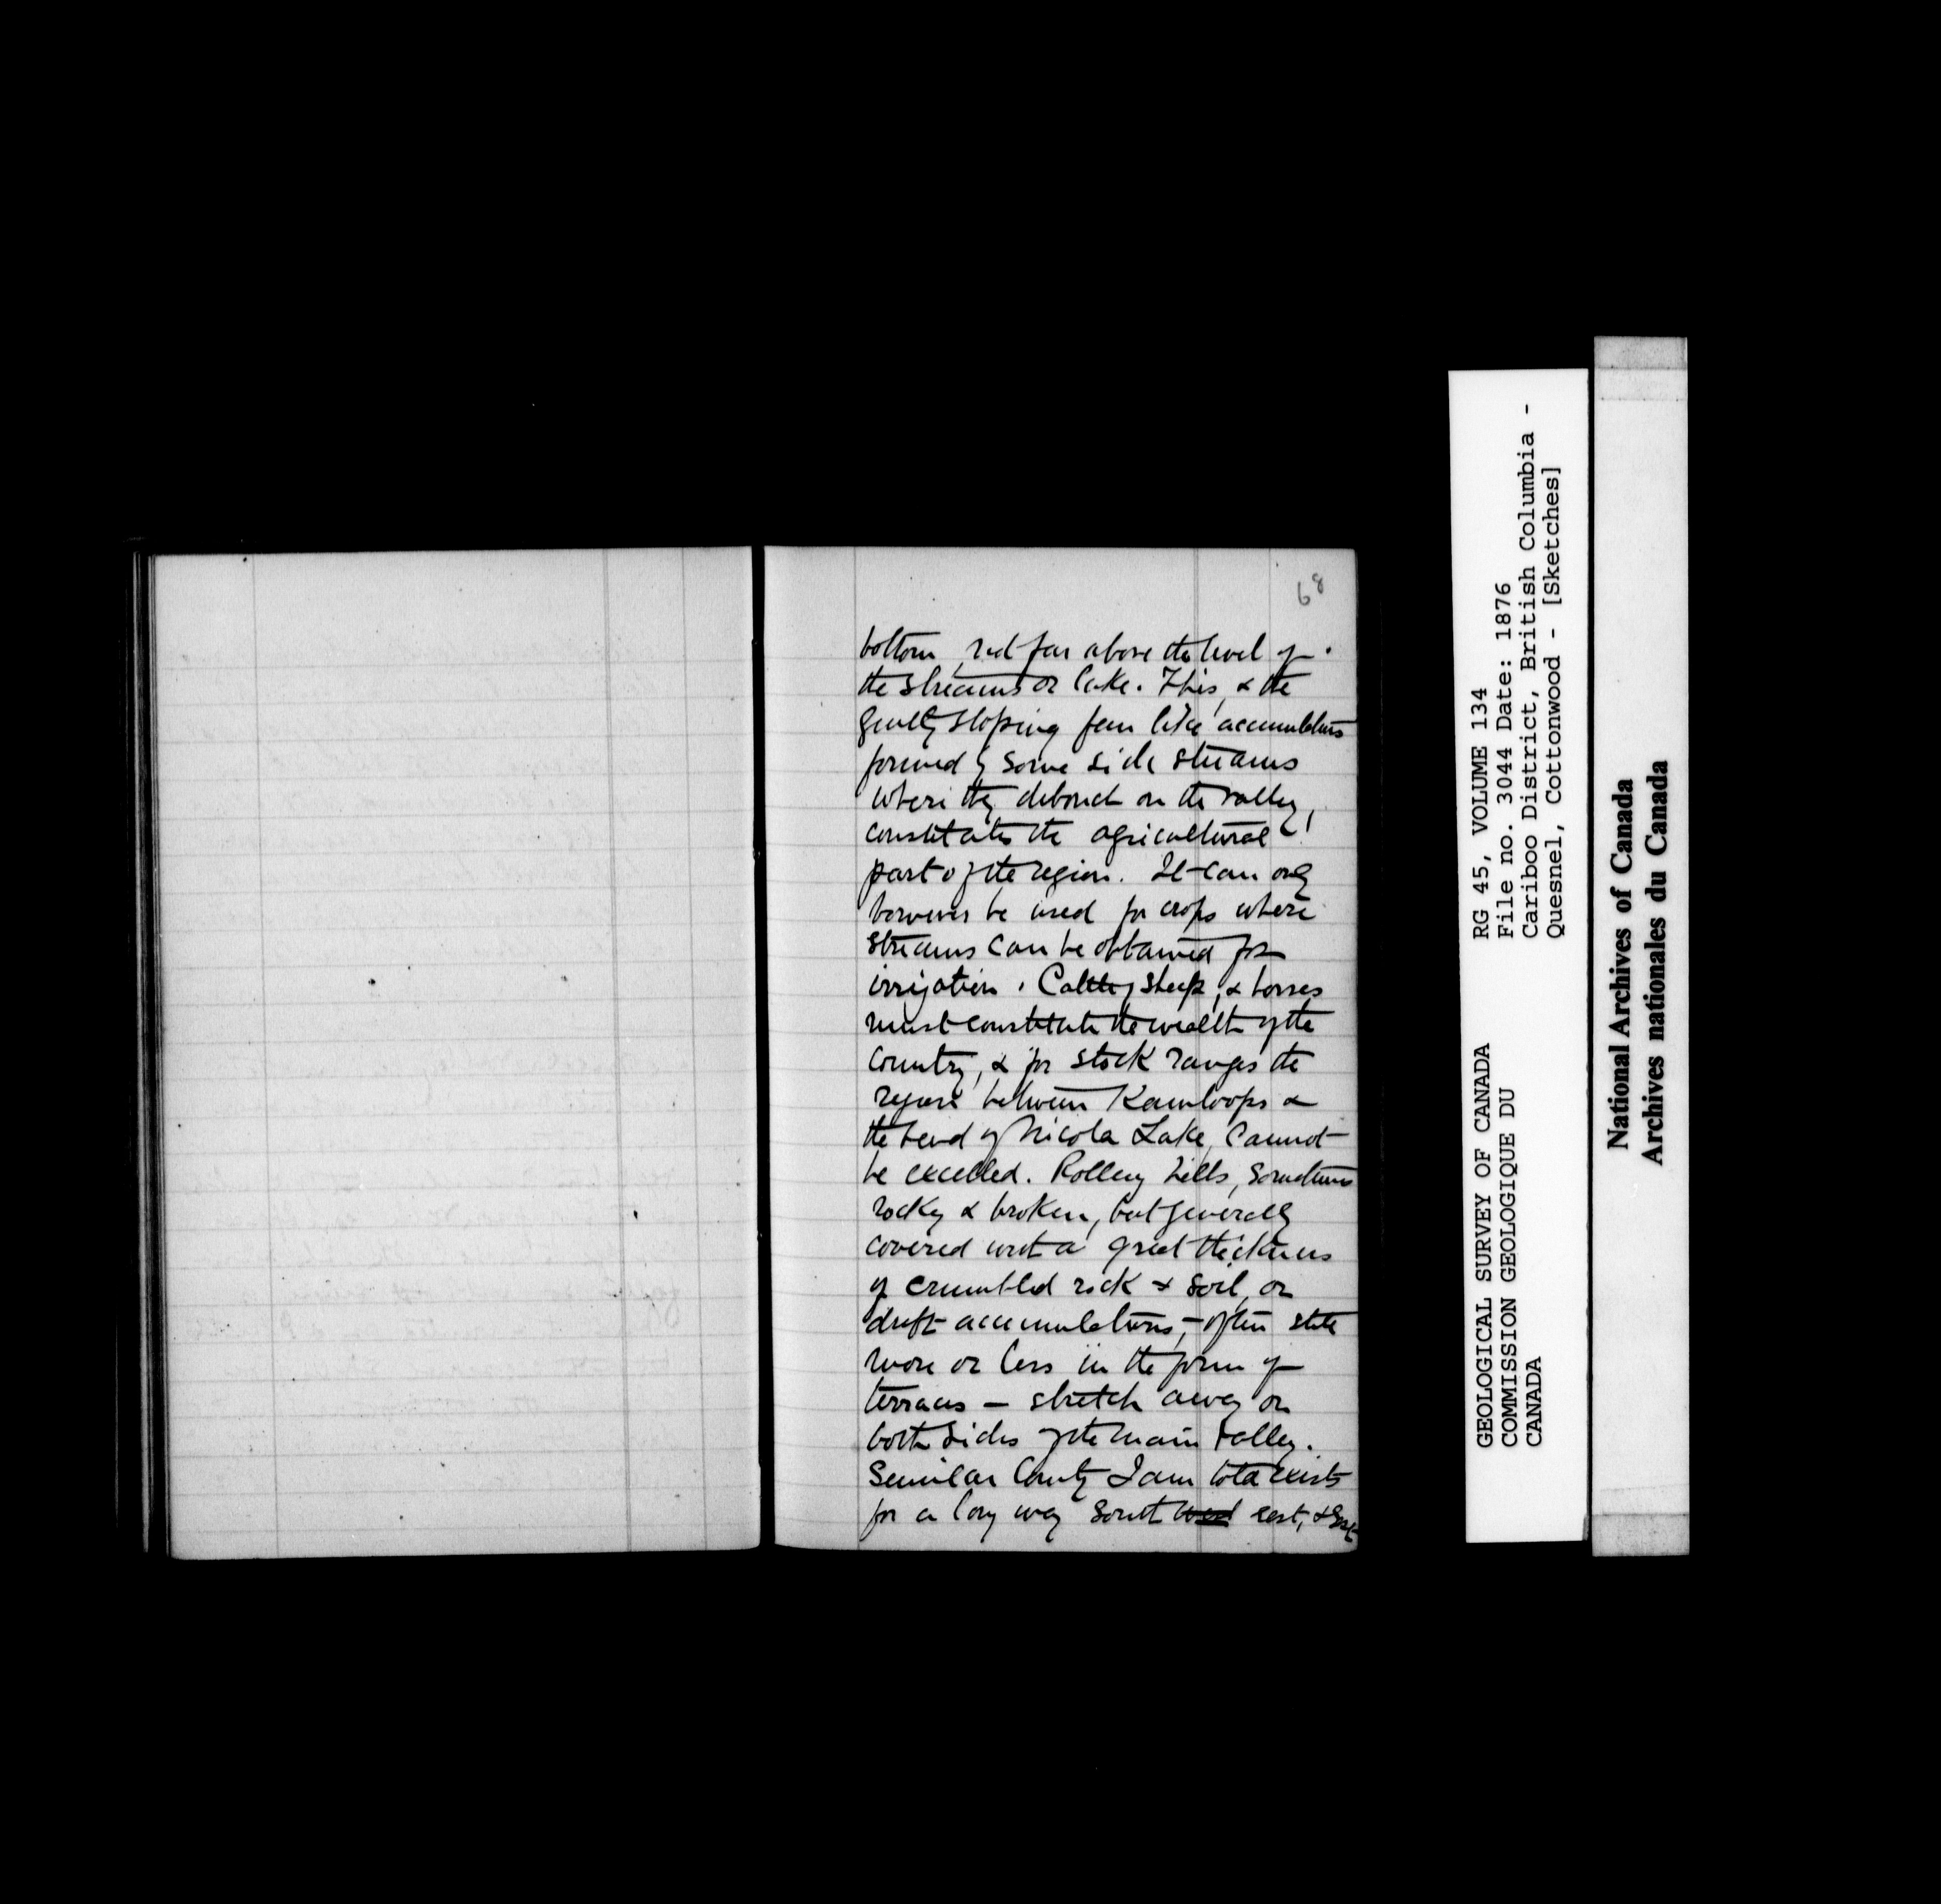 68
bottom, not far above the level of
the streams or lake. This, & the
gently sloping fan like accumulations
formed by some side streams
where they debouch on the valley,
constitutes the agricultural
part of the region. It can only
however be used for crops where
streams can be obtained for
irrigation. Cattle, sheep, & horses
must constitute the wealth of the
country, & for stock ranges the
region between Kamloops &
the head of Nicola Lake, cannot
be excelled. Rolling hills, sometimes
rocky & broken, but generally
covered with a great thickness
of crumbled rock & soil, or
drift accumulations, - often still
more or less in the form of
terraces — stretch away on
both sides of the main valley.
Similar County I am told exists
for a long way South west east, &
GEOLOGICAL SURVEY OF CANADA
COMMISSION GEOLOGIQUE DU
CANADA
RG 45, VOLUME 134
File no. 3044 Date: 1876
Cariboo District, British Columbia -
Quesnel, Cottonwood - [Sketches]
National Archives of Canada
Archives nationales du Canada